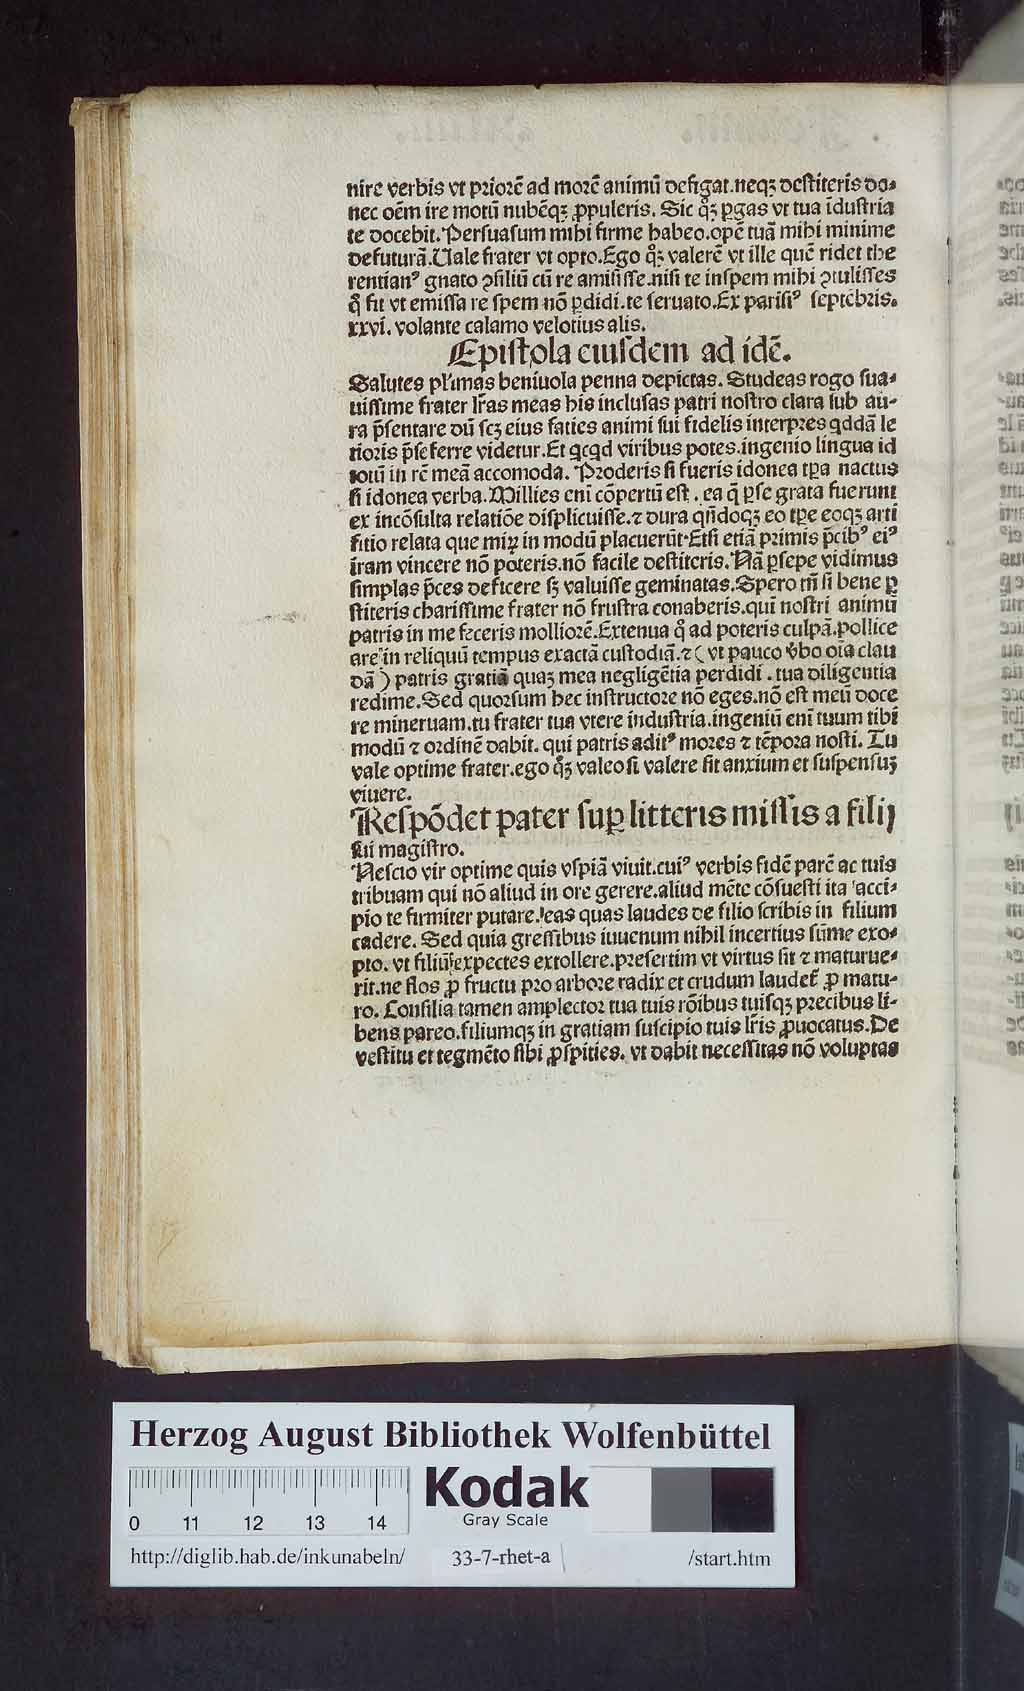 nire verbis vt priorē ad morē animū defigat.neqȝ destiteris do-
nec oēm ire motū nubēqȝ ꝓpuleris. Sic qͦȝ ꝑgas vt tua īdustria
te docebit. Persuasum mihi firme habeo.opē tuā mihi minime
defuturā.Uale frater vt opto.Ego qͦȝ valerē vt ille quē ridet the
rentianꝰ gnato ꝯsiliū cū re amisisse.nisi te inspem mihi ꝯtulisses
q̊ fit vt emissa re spem nō ꝑdidi.te seruato.Ex parisiꝰ septēbris.
xxvi. volante calamo velotius alis.
Epistola eiusdem ad idē.
Salutes pl'imas beniuola penna depictas. Studeas rogo sua-
uissime frater lr̄as meas his inclusas patri nostro clara sub au-
ra p̄sentare dū scȝ eius faties animi sui fidelis interpres qddā le
tioris p̄seferre videtur.Et qcqd viribus potes.ingenio lingua id
totū in rē meā accomoda. Proderis si fueris idonea tꝑa nactus
si idonea verba.Millies enī cōpertū est . ea q̄ ꝑse grata fuerunt
ex incōsulta relatiōe displicuisse.⁊ dura qn̄doqȝ eo tꝑe eoqȝ arti
fitio relata que miꝝ in modū placuerūt.Etsi etiā primis p̄cibꝰ eiꝰ
iram vincere nō poteris.nō facile destiteris.Nā ꝑsepe vidimus
simplas p̄ces deficere sȝ valuisse geminatas.Spero tn̄ si bene ꝑ
stiteris charissime frater nō frustra conaberis.qui nostri animū
patris in me feceris molliorē.Extenua q̊ ad poteris culpā.pollice
are in reliquū tempus exactā custodiā.⁊ ( vt pauco v̓bo oīa clau
dā ) patris gratiā quaȝ mea negligētia perdidi . tua diligentia
redime.Sed quorsum hec instructore nō eges.nō est meū doce
re mineruam.tu frater tua vtere industria.ingeniū enī tuum tibi
modū ⁊ ordinē dabit. qui patris aditꝰ mores ⁊ tēpora nosti. Tu
vale optime frater.ego qͦȝ valeo si valere sit anxium et suspensuȝ
viuere.
Respōdet pater suꝑ litteris missis a filij
sui magistro.
Nescio vir optime quis vspiā viuit.cuiꝰ verbis fidē parē ac tuis
tribuam qui nō aliud in ore gerere.aliud mēte cōsuesti ita acci-
pio te firmiter putare.eas quas laudes de filio scribis in filium
cadere. Sed quia gressibus iuuenum nihil incertius sume exo-
pto. vt filiū expectes extollere.presertim vt virtus sit ⁊ maturue-
rit.ne flos ꝓ fructu pro arbore radix et crudum laudet̄ ꝓ matu-
ro. Consilia tamen amplector tua tuis rōibus tuisqȝ precibus li-
bens pareo.filiumqȝ in gratiam suscipio tuis lr̄is ꝓuocatus.De
vestitu et tegmēto sibi ꝓspities. vt dabit necessitas nō voluptas
Herzog August Bibliothek Wolfenbüttel
0 11 12 13 14
Kodak
Gray Scale
http://diglib.hab.de/inkunabeln/ 33-7-rhet-a /start.htm